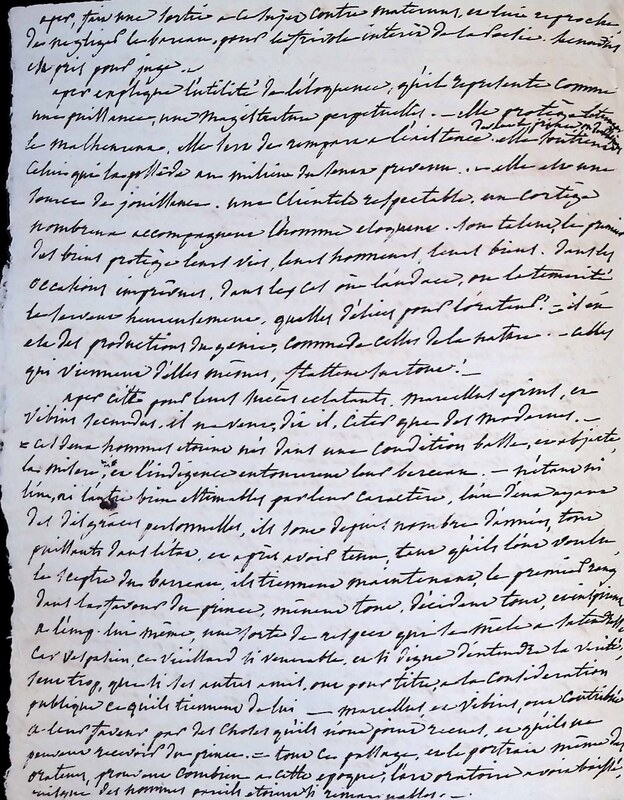 aper fait une sortie a ce sujet contre maternus, et lui reproche
de negliger le barreau, pour le frivole interêt de la poesie. secundus
est pris pour juge. -
aper explique l'utilité de l'éloquence, qu'il represente comme
une puissance, une magistrature perpetuelles. - elle protège
le malheureux, elle sert de rempart a l'existence. elle soutient
celui qui la possède au milieu du senat prevenu. - elle est une
source de jouissance. une clientele respectable, un cortège
nombreux accompagnent l'homme eloquent. son talent, le premier
des biens protège leurs vies, leurs honneurs, leurs biens. dans les
occasions imprévues, dans les cas où l'audace, ou la temerité
le servent heureusement, quelles délices pour l'orateur! - il en
est des productions du genie, comme de celles de la nature. - celles
qui viennent d'elles mêmes, flattent surtout! -
aper cite pour leurs succès eclatants, marcellus eprius, et
vibius secundus, il ne veut, dit il, citer que des modernes. -
= ces deux hommes etoient nés dans une condition basse, et abjecte
la misere, et l'indigence entourerent leur berceau. - n'étant ni
l'un, ni l'autre bien estimables par leur caractère, l'un d'eux ayant
des disgraces personnelles, ils sont depuis nombre d'années, tout
puissants dans l'état, et après avoir tenu, tant qu'ils l'ont voulu
le sceptre du barreau, ils tiennent maintenant le premier rang
dans la faveur du prince, mènent tout, décident tout, et inspirent
a l'emp. lui même, une sorte de respect qui se mêle a sa tendresse
car vespasien, ce vieillard si venerable, et si digne d'entendre la verité,
sent trop, que si ses autres amis, ont pour titre, a la consideration
publique ce qu'ils tiennent de lui - marcellus et vibius, ont contribué
a leur faveur par des choses qu'ils n'ont point recues, et qu'ils ne
peuvent recevoir du prince. = tout ce passage, et le portrait même des
orateurs, prouvent combien a cette epoque, l'art oratoire avoit baissé,
puisque des hommes pareils etoient si remarquables. -